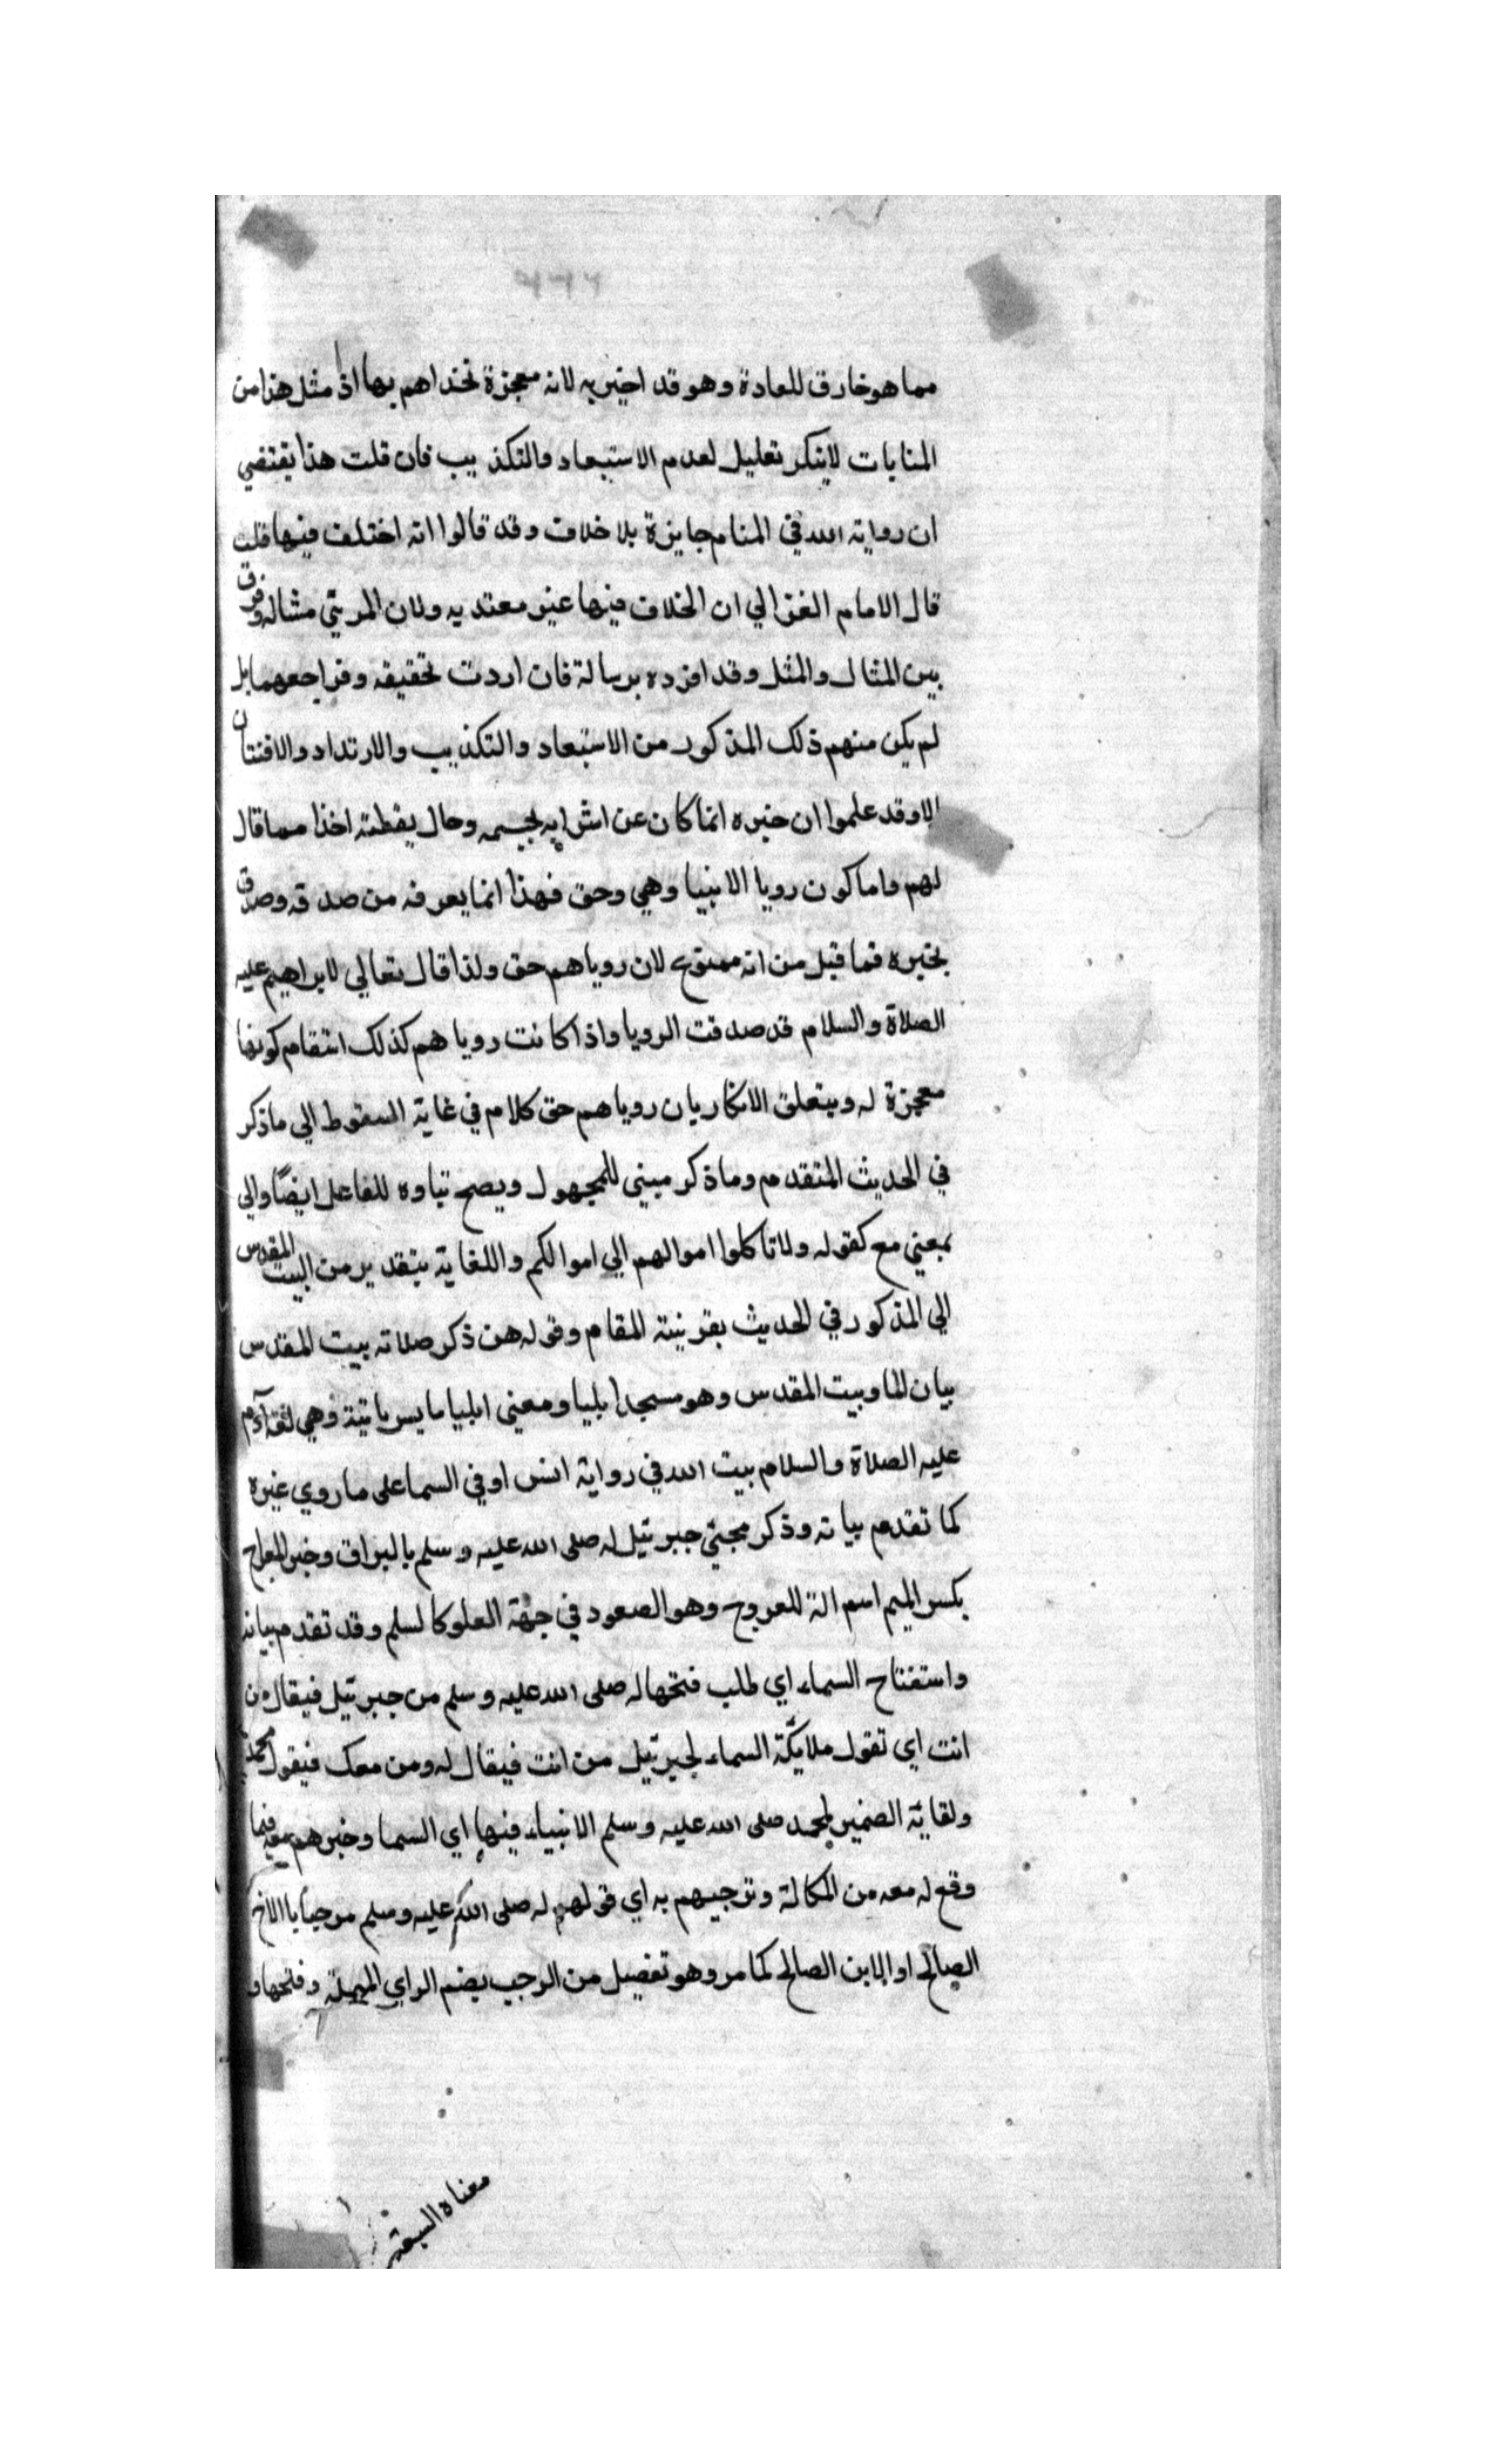 مما هو خارق للعادة وهو قد اخبر به لانه معجزة تحداهم بها اذ مثل هذا من
المنامات لا ينكر تعليل لعدم الاستبعاد والتكذيب فان قلت هذا يقتضي
ان رواية الله في المنام جايزة بلا خلاف وقد قالوا انه اختلف فيها قلت
قال الامام الغزالي ان الخلاف فيها غير معتد به ولان المرئي مثاله وفرق
بين المثال والمثل وقد افرده برسالة فان اردت تحقيقه وفراجعها بل
لم يكن منهم ذلك المذكور من الاستبعاد والتكذيب والارتداد والافتتان
الا وقد علموا ان خبره انما كان عن اسرايه بجسمه وحال يقظته اخذا مما قال
لهم واما كون رويا الانبيا وهي وحق فهذا انما يعرفه من صدقه وصدق
بخبره فما قيل من انه ممنوع لان روياهم حق ولذا قال تعالي لابراهيم عليه
الصلاة والسلام قد صدقت الرويا واذا كانت روياهم كذلك استقام كونها
معجزة له ويتعلق الانكار بان روياهم حق كلام في غاية السقوط الي ما ذكر
في الحديث المتقدم وما ذكر مبني للمجهول ويصح بناوه للفاعل ايضًا والي
بمعني مع كقوله ولا تاكلوا اموالهم الي اموالكم واللغاية بتقدير من البيت المقدس
الي المذكور في الحديث بقرينة المقام وقوله من ذكر صلاته ببيت المقدس
بيان لما وبيت المقدس وهو مسجد ايليا ومعني ايليا بالسريانية وهي لغة آدم
عليه الصلاة والسلام بيت الله في رواية انس او في السما على ما روي غيره
كما تقدم بيانه وذكر مجئ جبرئيل له صلى الله عليه وسلم بالبراق وخبر المعراج
بكسر الميم اسم الة للعروج وهو الصعود في جهة العلو كالسلم وقد تقدم بيانه
واستفتاح السماء اي طلب فتحها له صلى الله عليه وسلم من جبرئيل فيقال من
انت اي تقول ملايكة السماء لجبرئيل من انت فيقال له ومن معك فيقول محمد
ولقائه الضمير لمحمد صلى الله عليه وسلم الانبياء فيها اي السما وخبرهم معه فيما
وقع له معه من المكالمة وترحيبهم به اي قولهم له صلى الله عليه وسلم مرحبًا بالاخ
الصالح او الابن الصالح كما مر وهو تفعيل من الرحب بضم الراي المهملة وفتحها و
معناه السعة